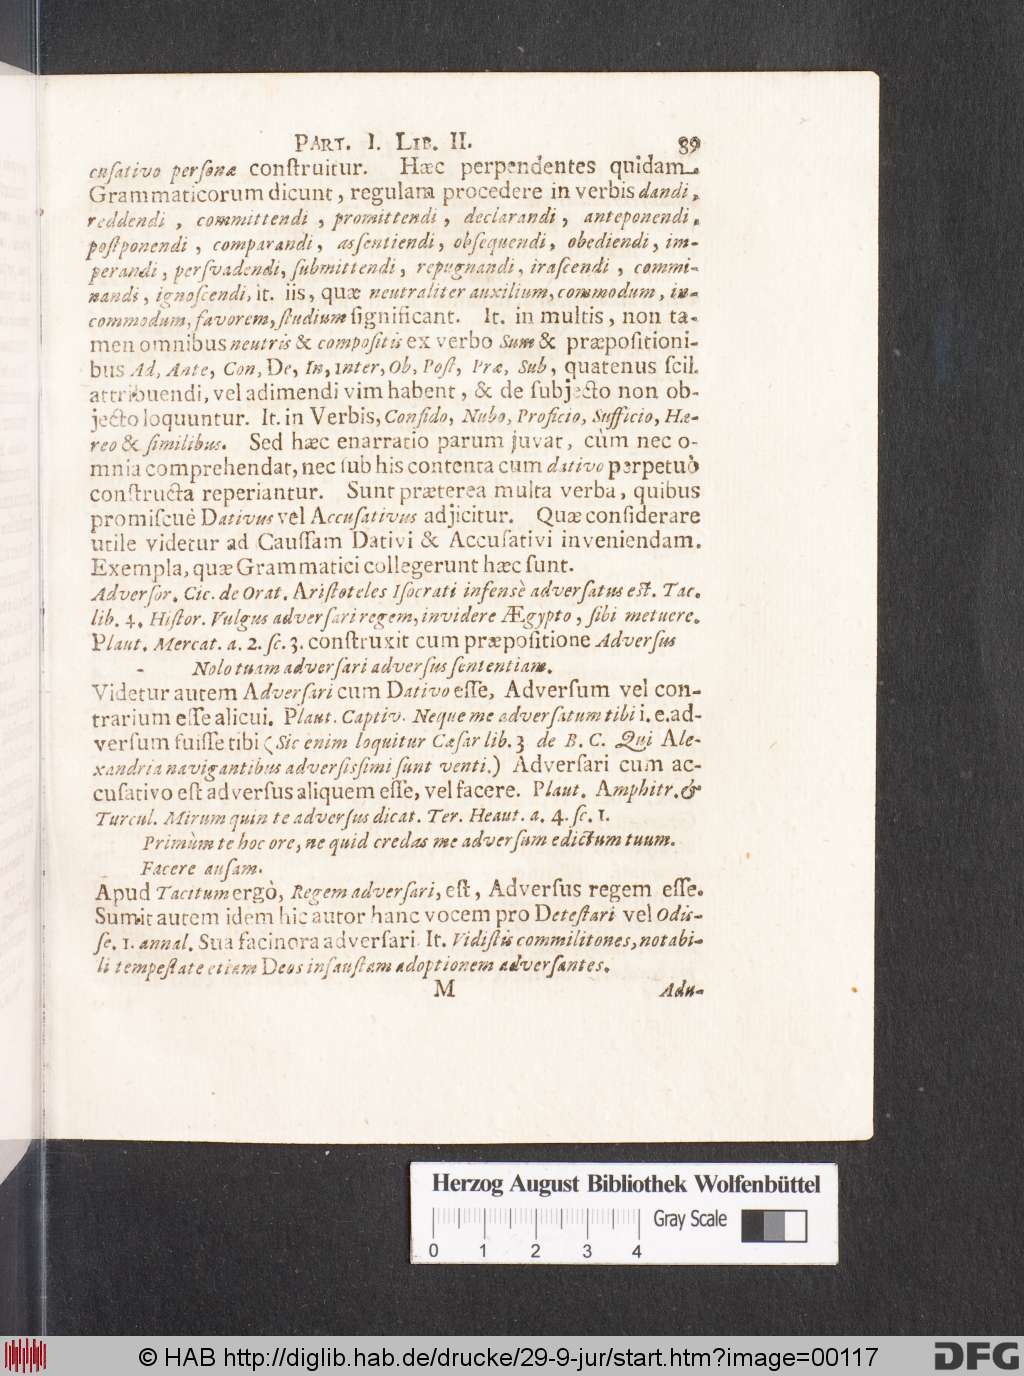 PART. I. LIB. II. 89
cuſativo perſonæ conſtruitur. Hæc perpendentes quidam
Grammaticorum dicunt, regulam procedere in verbis dandi,
reddendi, committendi, promittendi, declarandi, anteponendi,
poſtponendi, comparandi, asſentiendi, obſequendi, obediendi, im-
perandi, perſvadendi, ſubmittendi, repugnandi, iraſcendi, commi-
nandi, ignoſcendi, it. iis, quæ neutraliter auxilium, commodum, in-
commodum, favorem, ſtudium ſignificant. It. in multis, non ta-
men omnibus neutris & compoſitis ex verbo Sum & præpoſitioni-
bus Ad, Ante, Con, De, In, Inter, Ob, Poſt, Præ, Sub, quatenus ſcil.
attribuendi, vel adimendi vim habent, & de ſubjecto non ob-
jecto loquuntur. It. in Verbis, Confido, Nubo, Proficio, Sufficio, Hæ-
reo & ſimilibus. Sed hæc enarratio parum juvat, cùm nec o-
mnia comprehendat, nec ſub his contenta cum dativo perpetuò
conſtructa reperiantur. Sunt præterea multa verba, quibus
promiſcuè Dativus vel Accuſativus adjicitur. Quæ conſiderare
utile videtur ad Cauſſam Dativi & Accuſativi inveniendam.
Exempla, quæ Grammatici collegerunt hæc ſunt.
Adverſor. Cic. de Orat. Ariſtoteles Iſocrati infensè adverſatus eſt. Tac.
lib. 4. Hiſtor. Vulgus adverſari regem, invidere Ægypto, ſibi metuere.
Plaut. Mercat. a. 2. ſc. 3. conſtruxit cum præpoſitione Adverſus
Nolo tuam adverſari adverſus ſententiam.
Videtur autem Adverſari cum Dativo eſſe, Adverſum vel con-
trarium eſſe alicui. Plaut. Captiv. Neque me adverſatum tibi i. e. ad-
verſum fuiſſe tibi (Sic enim loquitur Cæſar lib. 3 de B. C. Qui Ale-
xandria navigantibus adverſisſimi ſunt venti.) Adverſari cum ac-
cuſativo eſt adverſus aliquem eſſe, vel facere. Plaut. Amphitr. &
Turcul. Mirum quin te adverſus dicat. Ter. Heaut. a. 4. ſc. 1.
Primùm te hoc ore, ne quid credas me adverſum edictum tuum.
Facere auſam.
Apud Tacitum ergò, Regem adverſari, eſt, Adverſus regem eſſe.
Sumit autem idem hic autor hanc vocem pro Deteſtari vel Odis-
ſe. 1. annal. Sua facinora adverſari. It. Vidiſtis commilitones, notabi-
li tempeſtate etiam Deos infauſtam adoptionem adverſantes.
M Adu-
Herzog August Bibliothek Wolfenbüttel
Gray Scale
0 1 2 3 4
© HAB http://diglib.hab.de/drucke/29-9-jur/start.htm?image=00117
DFG